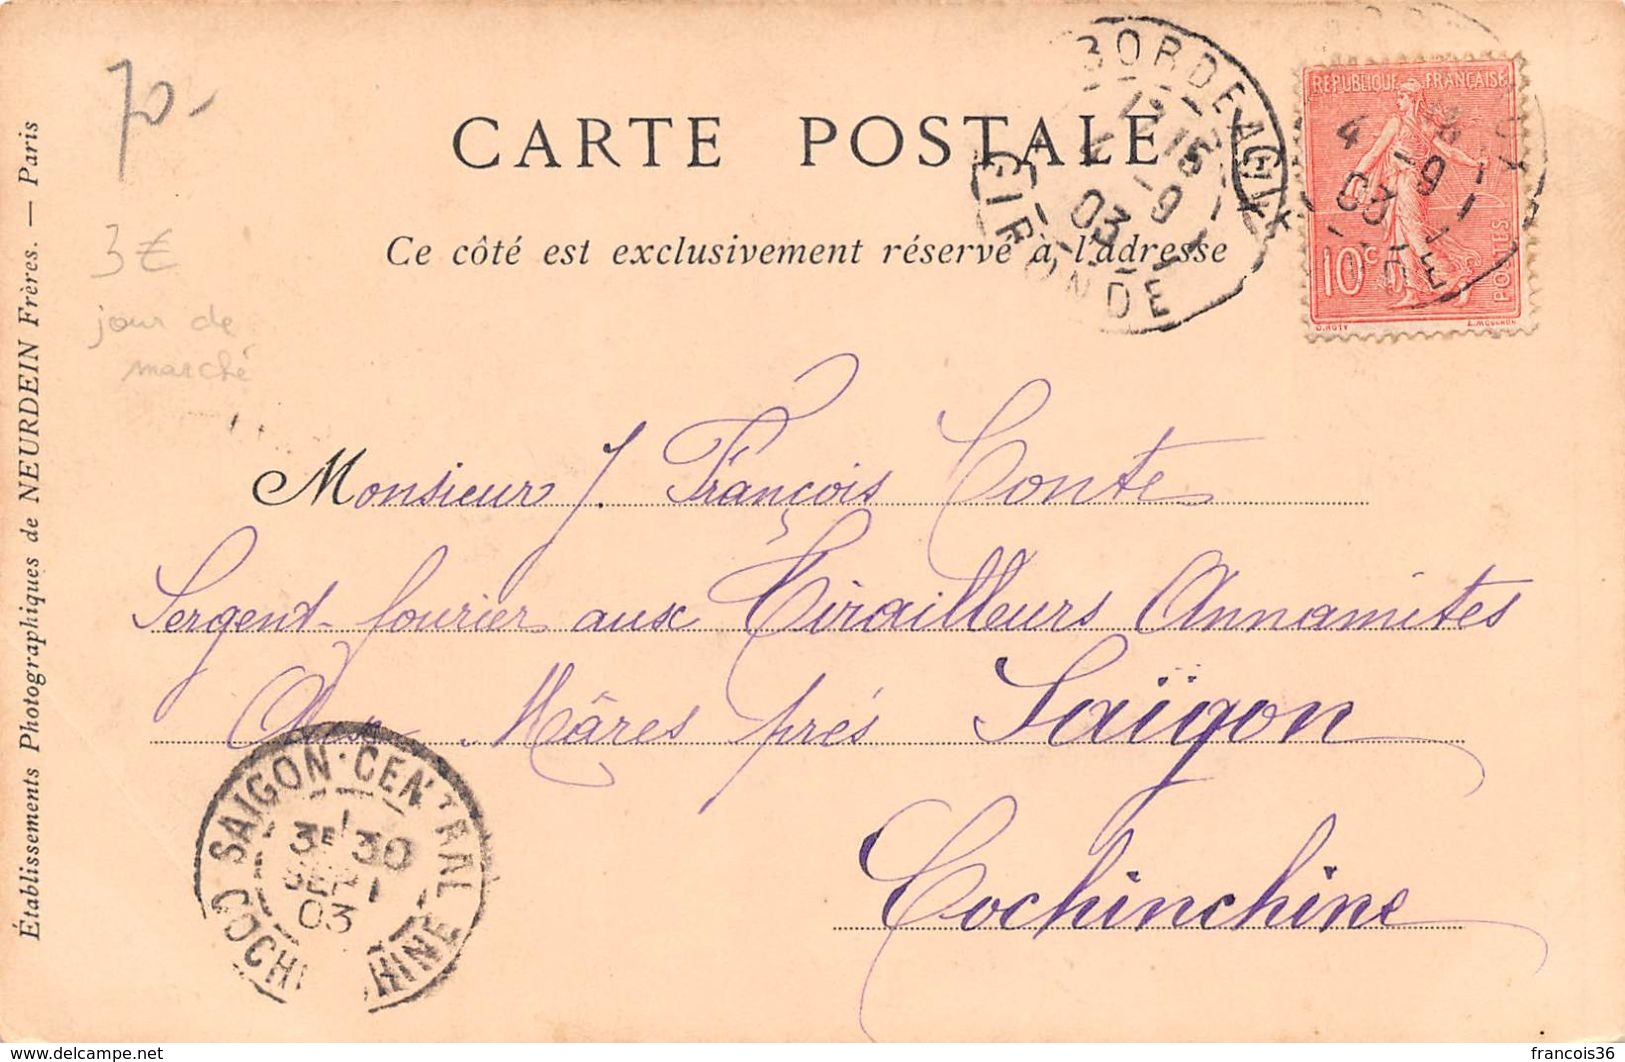 70-
3€
jour de
marché
CARTE POSTALE
Ce côté est exclusivement réservé à l'adresse
BORDEAUX
GIRONDE
4 -9
03
RÉPUBLIQUE FRANÇAISE
10c
POSTES
O. ROTY
E. MOUCHON
4 -9
03
Monsieur J. François Conte
Sergent-fourier aux Tirailleurs Annamites
Aux Mâres prés Saïgon
Cochinchine
SAIGON-CENTRAL
3E 30
SEPT
03
COCHINCHINE
Établissements Photographiques de NEURDEIN Frères. — Paris
www.delcampe.net
francois36